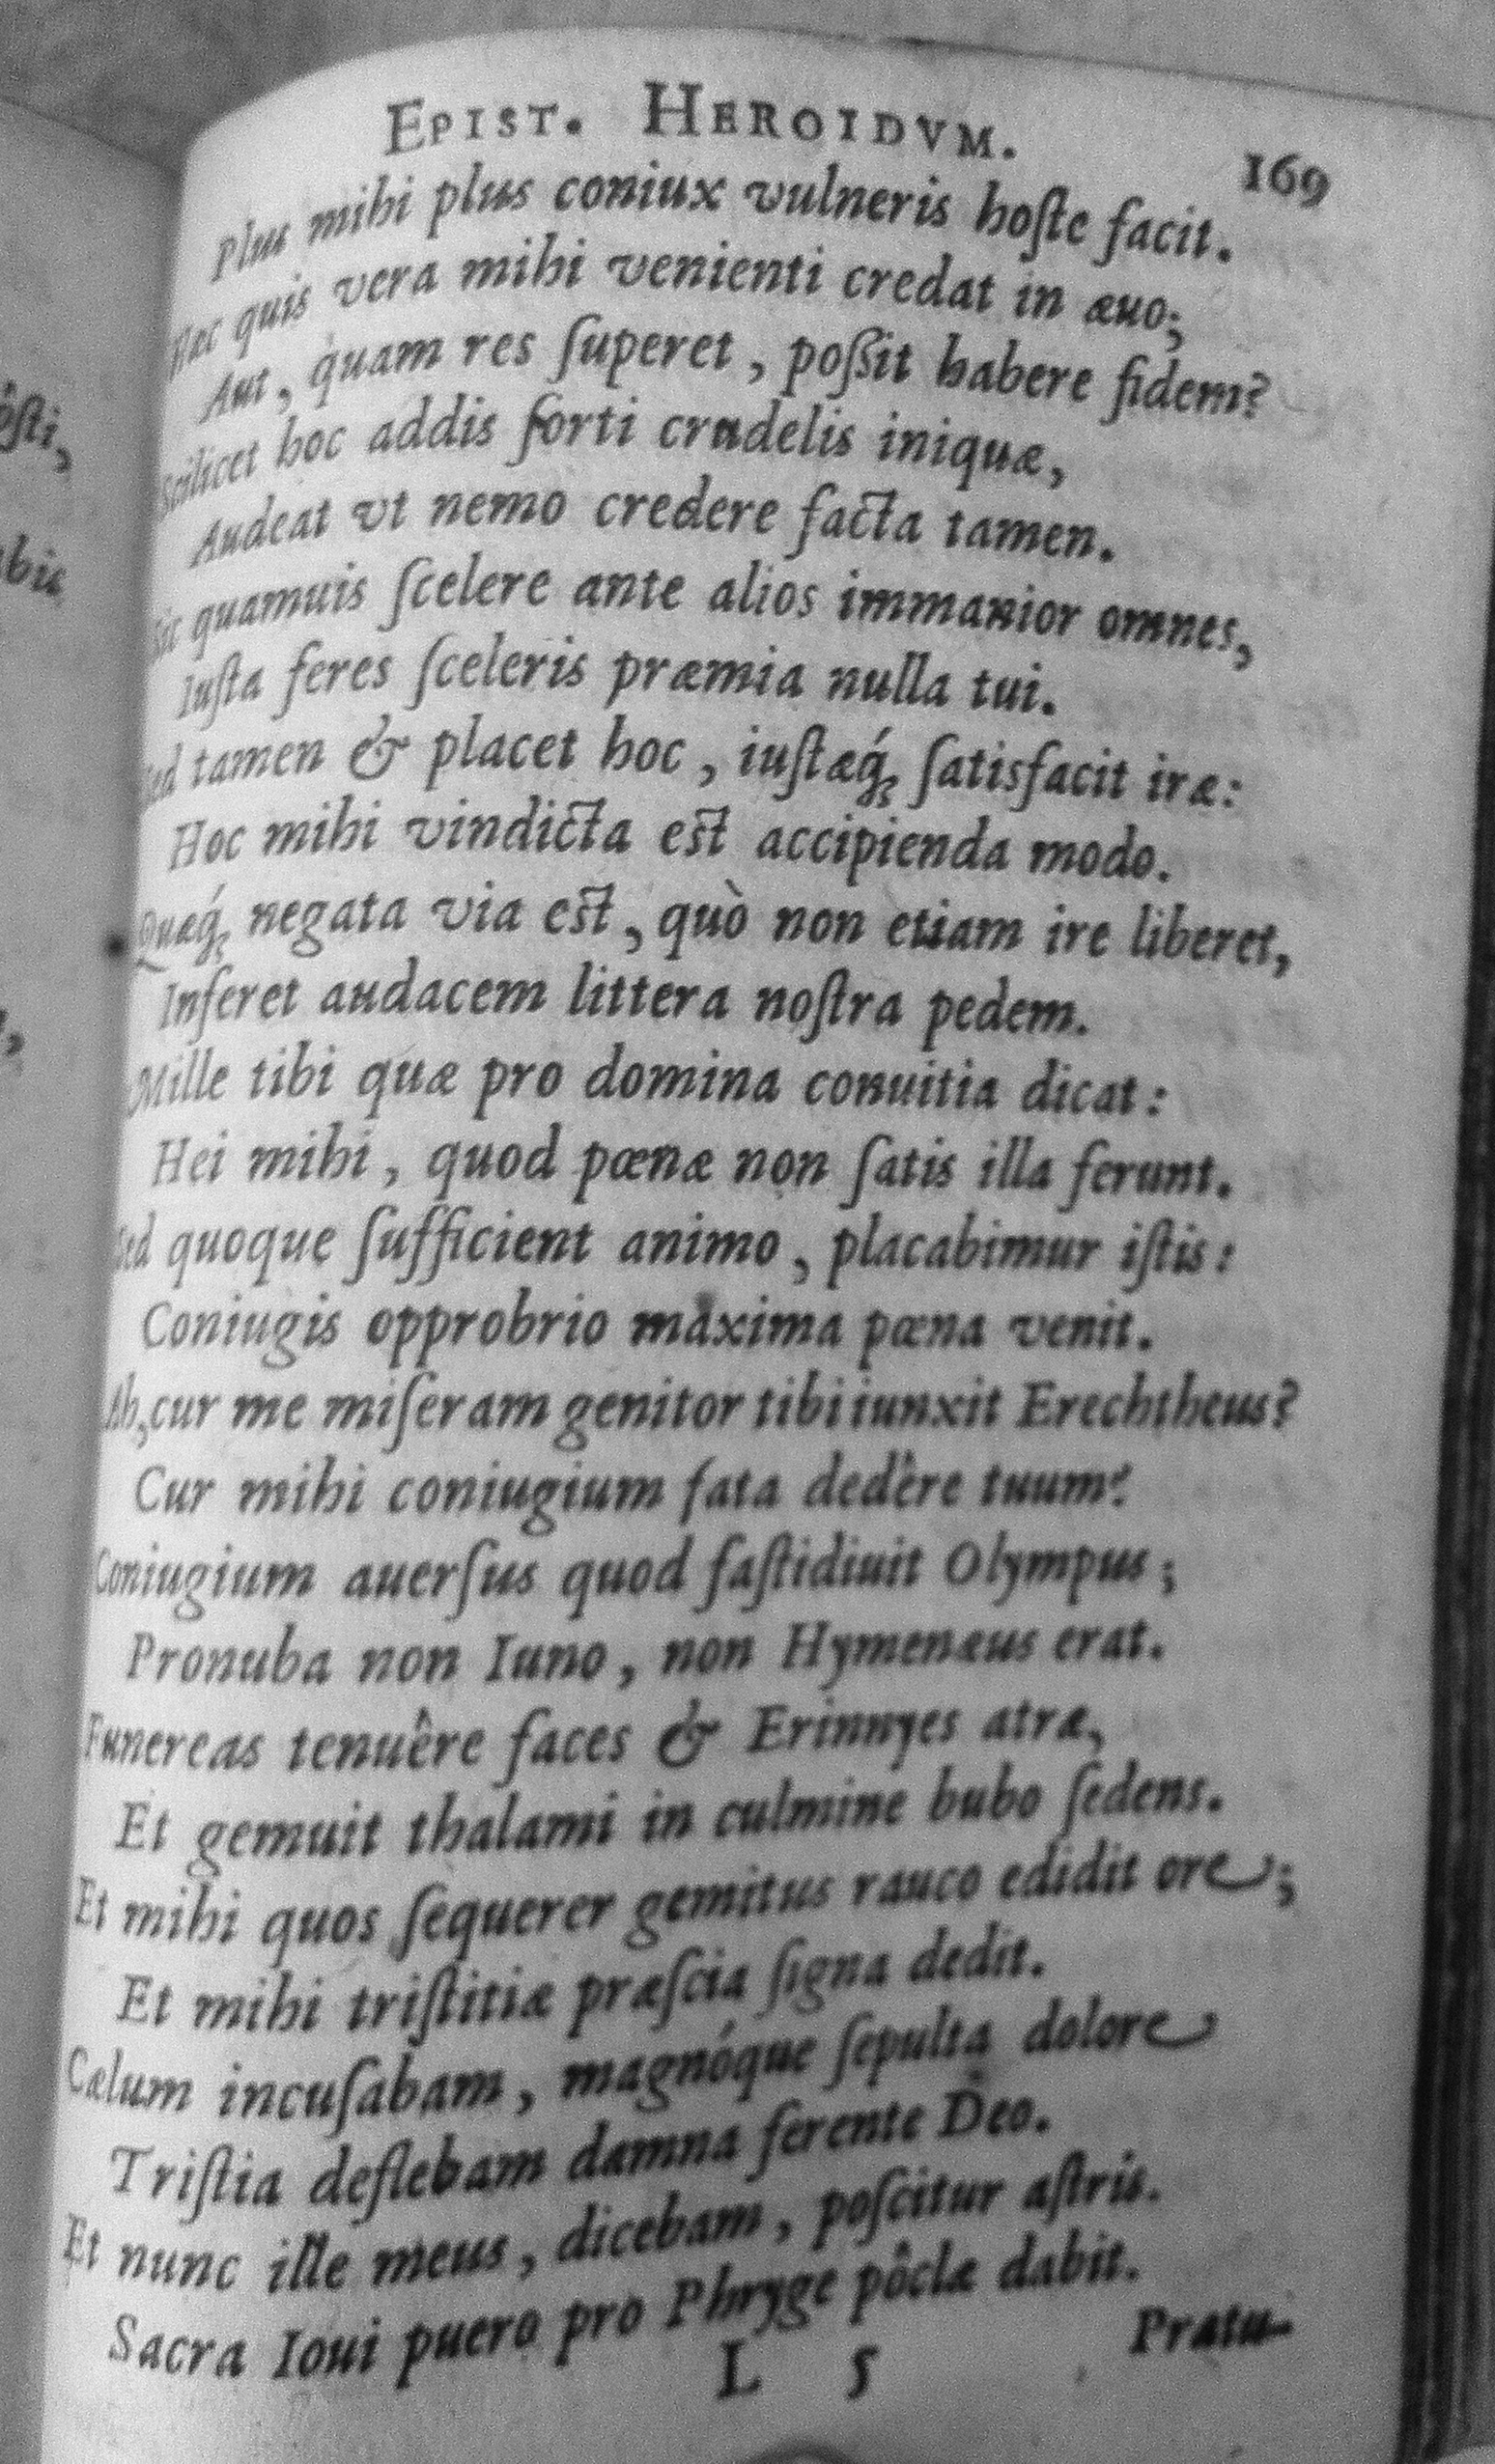 ôsti,
bis
EPIST. HEROIDVM. 169
Plus mihi plus coniux vulneris hoſte facit.
Hæc quis vera mihi venienti credat in æuo;
Aut, quam res ſuperet, poßit habere fidem?
Scilicet hoc addis forti crudelis iniquæ,
Audeat vt nemo credere facta tamen.
Sic quamuis ſcelere ante alios immanior omnes,
Iuſta feres ſceleris præmia nulla tui.
Sed tamen & placet hoc, iuſtæq́; ſatisfacit iræ:
Hoc mihi vindicta eſt accipienda modo.
Quæq́; negata via eſt, quò non etiam ire liberet,
Inferet audacem littera noſtra pedem.
Mille tibi quæ pro domina conuitia dicat:
Hei mihi, quod pœnæ non ſatis illa ferunt.
Sed quoque ſufficient animo, placabimur iſtis:
Coniugis opprobrio maxima pœna venit.
Ah, cur me miſeram genitor tibi iunxit Erechtheus?
Cur mihi coniugium fata dedêre tuum?
Coniugium auerſus quod faſtidiuit Olympus;
Pronuba non Iuno, non Hymenæus erat.
Funereas tenuêre faces & Erinnyes atræ,
Et gemuit thalami in culmine bubo ſedens.
Et mihi quos ſequerer gemitus rauco edidit ore;
Et mihi triſtitiæ præſcia ſigna dedit.
Cælum incuſabam, magnóque ſepulta dolore
Triſtia deflebam damna ferente Deo.
Et nunc ille meus, dicebam, poſcitur aſtris.
Sacra Ioui puero pro Phryge pôcla dabit.
L 5 Pratu-